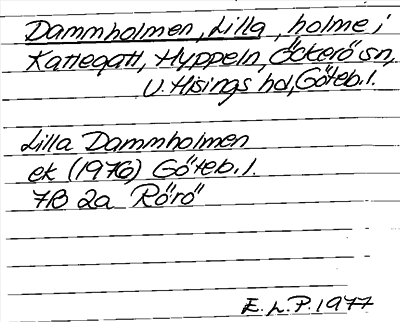 Dammholmen, Lilla, holme i
Kattegatt, Hyppeln, Öckerö sn,
V. Hisings hd, Göteb. l.
Lilla Dammholmen
ek (1976) Göteb. l.
7B 2a Rörö
E. L. P. 1977